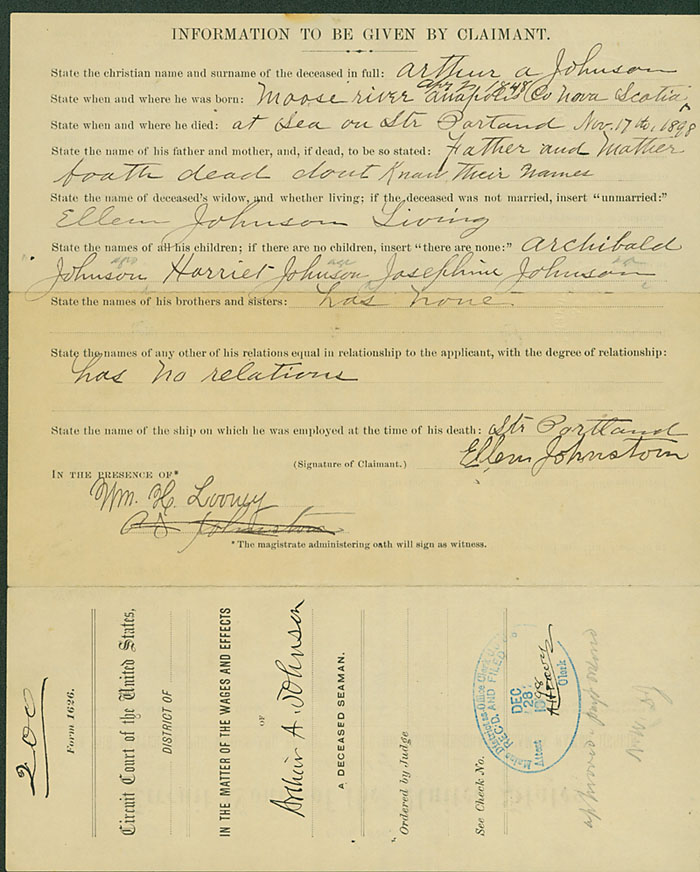 INFORMATION TO BE GIVEN BY CLAIMANT.
State the christian name and surname of the deceased in full: Arthur A Johnson
Apr 2, 1848
State when and where he was born: Moose river Anapolis Co Nova Scotia
State when and where he died: at Sea on Str Portand Nov. 17th, 1898
State the name of his father and mother, and, if dead, to be so stated: Father and Mather
boath dead dont Know their names
State the name of deceased's widow, and whether living; if the deceased was not married, insert "unmarried:"
Ellem Johnson Living
State the names of all his children; if there are no children, insert "there are none:" Archibald
Johnson Harriet Johnson Josephine Johnson
State the names of his brothers and sisters: has none.
State the names of any other of his relations equal in relationship to the applicant, with the degree of relationship:
has no relations
State the name of the ship on which he was employed at the time of his death: Str Portland
(Signature of Claimant.) Ellem Johnstom
IN THE PRESENCE OF*
Wm. H. Looney
Johnston
* The magistrate administering oath will sign as witness.
200
Form 1626.
Circuit Court of the United States,
DISTRICT OF
IN THE MATTER OF THE WAGES AND EFFECTS
OF
Arthur A. Johnson
A DECEASED SEAMAN.
Ordered by Judge
See Check No.
REC'D AND FILED
DEC 28 1898
Attest
Clerk